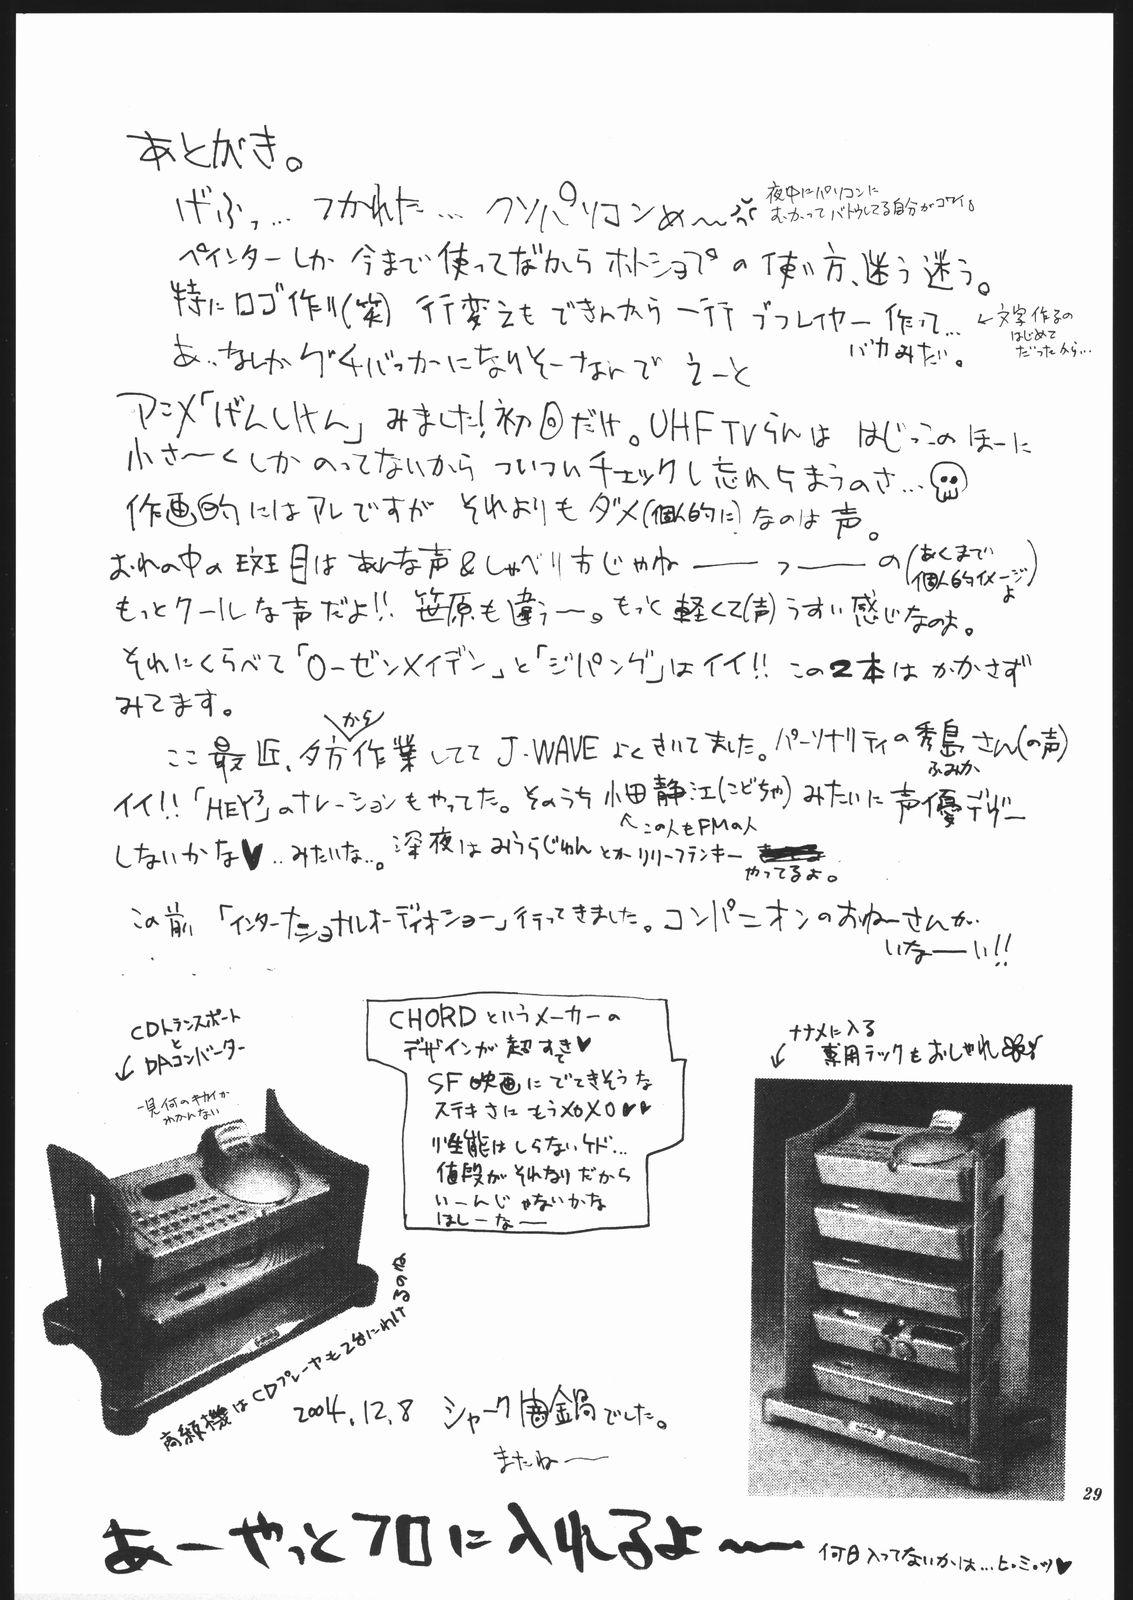 あとがき。
げふっ… つかれた… クソパソコンめ〜
夜中にパソコンに
むかってバトウしてる自分がコワイ。
ペインターしか今まで使ってなかったからホトショプの使い方、迷う迷う。
特にロゴ作り(笑) 行変えもできんから一行づつレイヤー作って…
バカみたい。
←文字作るの
はじめて
だったから…
あ、なんかグチバッカーになりそーなんで えーと
アニメ「げんしけん」みました!初回だけ。UHF TVらんは はじっこのほーに
小さ〜くしか のってないから ついついチェックし忘れちまうのさ…
作画的にはアレですが それよりもダメ(個人的に)なのは声。
おれの中の斑目はあんな声&しゃべり方じゃねーーっーーの(あくまで
個人的イメージ)
よ
もっとクールな声だよ!! 笹原も違うー。もっと軽くて(声)うすい感じなのよ。
それにくらべて「ローゼンメイデン」と「ジパング」はイイ!! この2本はかかさず
みてます。
から
ここ最近、夕方作業してて J-WAVEよくきいてました。パーソナリティの秀島さん(の声)
ふみか
イイ!!「HEY³」のナレーションもやってた。そのうち 小田静江(こどちゃ)みたいに声優デヴー
↖この人もFMの人
しないかな♥…みたいな…。深夜はみうらじゅんとかリリーフランキー
やってるよ。
この前「インターナショナルオーディオショー」行ってきました。コンパニオンのおねーさんが
いなーーい!!
CDトランスポート
と
DAコンバーター
↙
一見何のキカイか
わかんない
CHORDというメーカーの
デザインが超すきで♥
SF映画にでてきそうな
ステキさに もうメロメロ♥♥
性能はしらないケド…
値段がそれなりだから
いーんじゃないかな
ほしーなー
ナナメに入る
↙専用ラックもおしゃれ
高級機はCDプレーヤも2台にわけるのね
2004.12.8 シャーク歯鍋でした。
またねーー
29
あーやっとフロに入れるよ〜〜
何日入ってないかは…ヒ・ミ・ツ♥